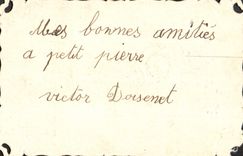 Mes bonnes amitiés
a petit pierre
victor Doisenet